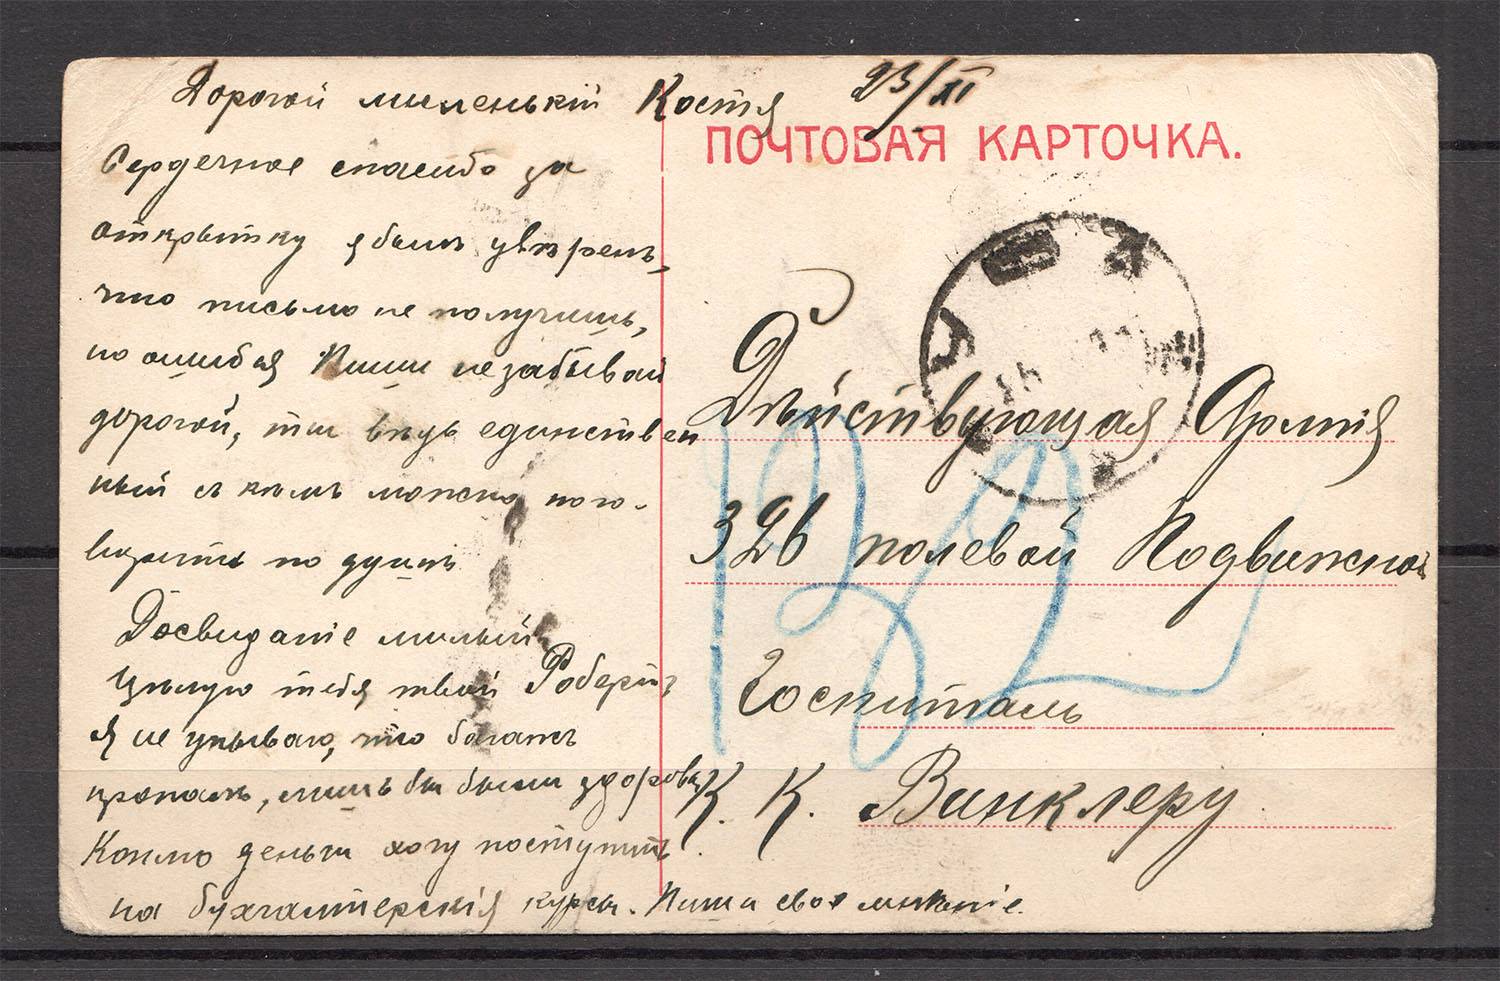 Дорогой миленькій Костя 23/XI
Сердечное спасибо за
открытку я былъ увѣренъ,
что письмо не получишь,
но ошибся Пиши не забывай
дорогой, ты вѣдь единствен
ный съ кѣмъ можно пого-
ворить по душѣ
Досвиданіе милый
Цѣлую тебя твой Робертъ
Я не унываю, что багажъ
пропалъ, лишь бы были здоровы
Коплю деньги хочу поступить
на бухгалтерскія курсы. Пиши свое мнѣніе.
ПОЧТОВАЯ КАРТОЧКА.
Дѣйствующая Армія
326 полевой Подвижной
Госпиталь
К. К. Винклеру